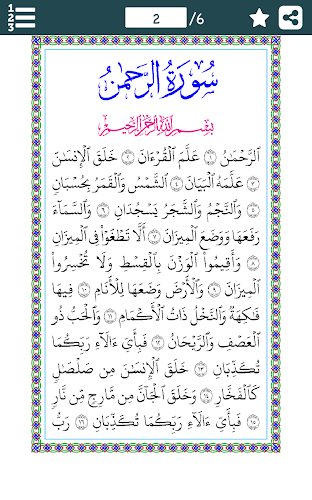 1
2
3
2
/6
سُورَةُ الرَّحْمَٰنُ
بِسْمِ اللَّهِ الرَّحْمَٰنِ الرَّحِيمِ
الرَّحْمَٰنُ ١ عَلَّمَ الْقُرْءَانَ ٢ خَلَقَ الْإِنسَٰنَ
٣ عَلَّمَهُ الْبَيَانَ ٤ الشَّمْسُ وَالْقَمَرُ بِحُسْبَانٍ
٥ وَالنَّجْمُ وَالشَّجَرُ يَسْجُدَانِ ٦ وَالسَّمَآءَ
رَفَعَهَا وَوَضَعَ الْمِيزَانَ ٧ أَلَّا تَطْغَوْا۟ فِى الْمِيزَانِ
٨ وَأَقِيمُوا۟ الْوَزْنَ بِالْقِسْطِ وَلَا تُخْسِرُوا۟
الْمِيزَانَ ٩ وَالْأَرْضَ وَضَعَهَا لِلْأَنَامِ ١٠ فِيهَا
فَٰكِهَةٌ وَالنَّخْلُ ذَاتُ الْأَكْمَامِ ١١ وَالْحَبُّ ذُو
الْعَصْفِ وَالرَّيْحَانُ ١٢ فَبِأَىِّ ءَالَآءِ رَبِّكُمَا
تُكَذِّبَانِ ١٣ خَلَقَ الْإِنسَٰنَ مِن صَلْصَٰلٍ
كَالْفَخَّارِ ١٤ وَخَلَقَ الْجَآنَّ مِن مَّارِجٍ مِّن نَّارٍ
١٥ فَبِأَىِّ ءَالَآءِ رَبِّكُمَا تُكَذِّبَانِ ١٦ رَبُّ